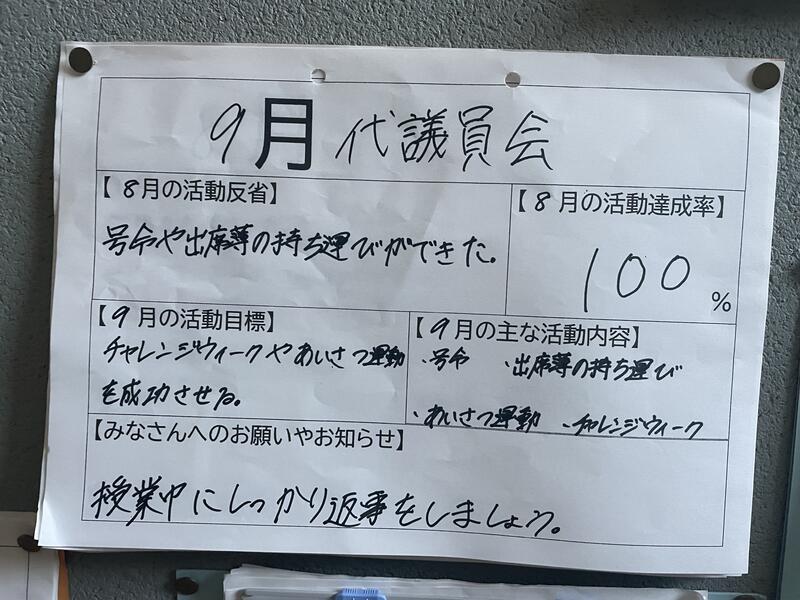 9月 代議員会
【8月の活動反省】
号令や出席簿の持ち運びができた。
【8月の活動達成率】
100%
【9月の活動目標】
チャレンジウィークやあいさつ運動
を成功させる。
【9月の主な活動内容】
・号令 ・出席簿の持ち運び
・あいさつ運動 ・チャレンジウィーク
【みなさんへのお願いやお知らせ】
授業中にしっかり返事をしましょう。